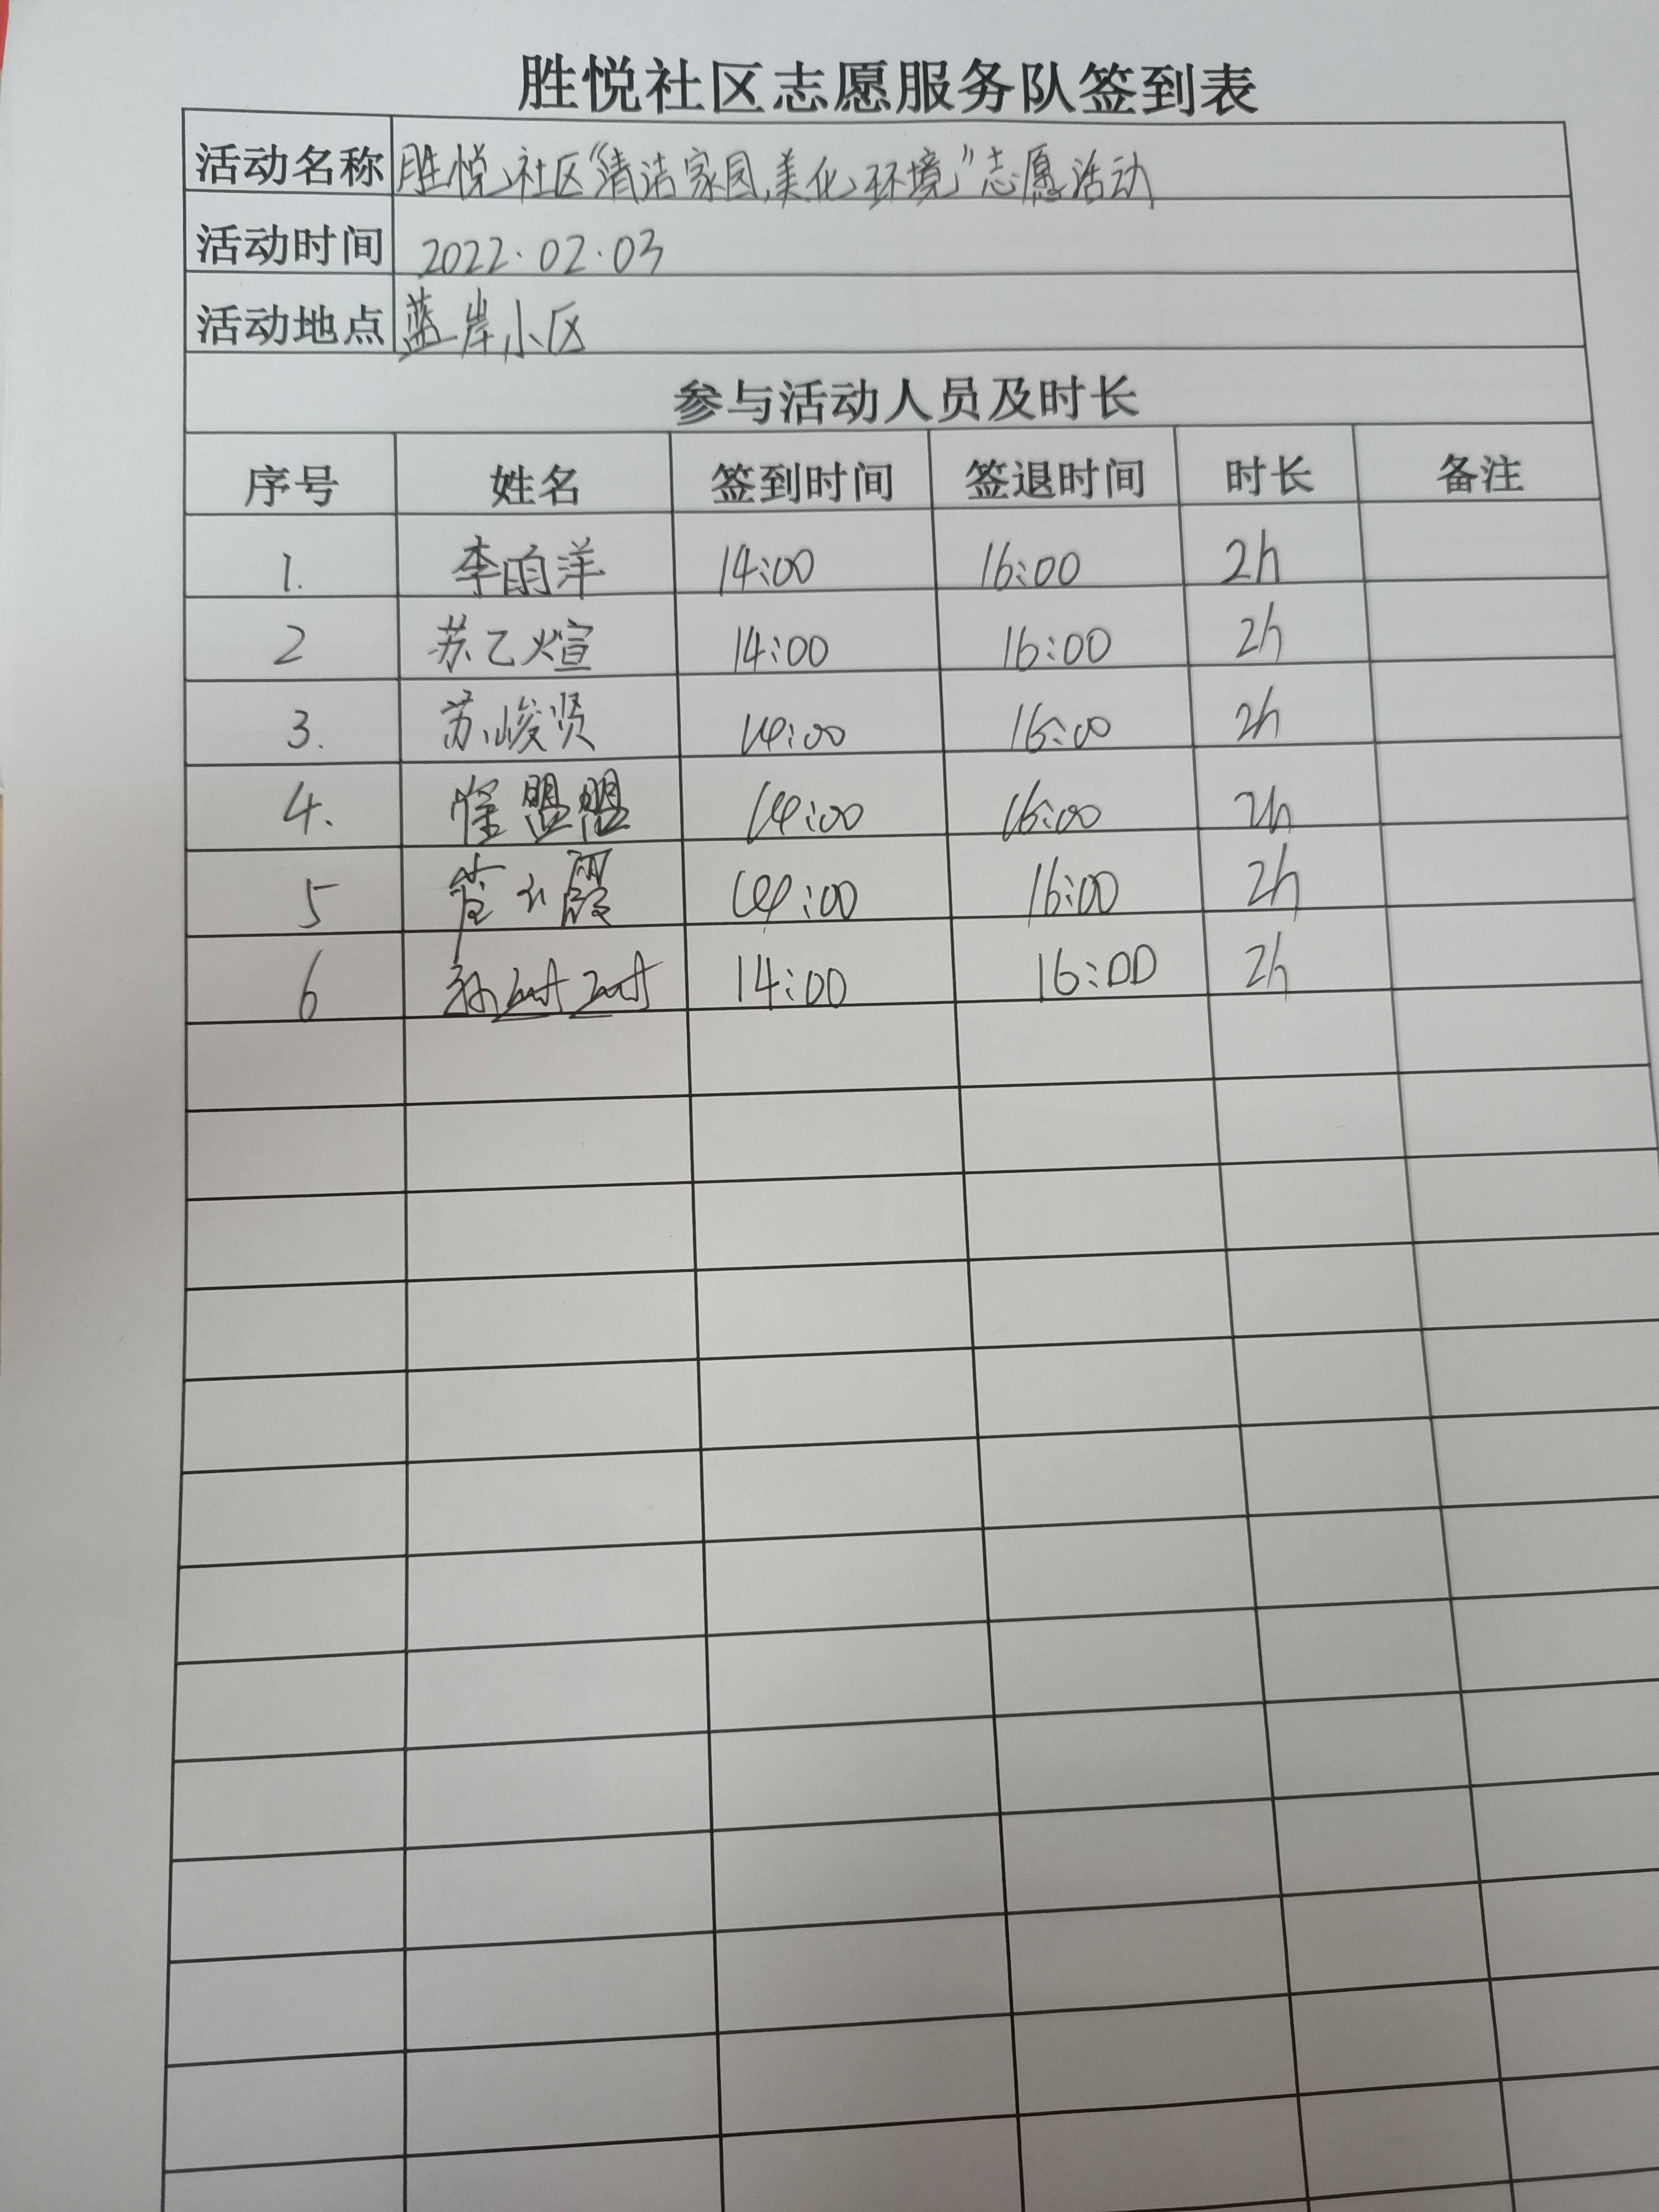 胜悦社区志愿服务队签到表
活动名称 胜悦社区“清洁家园,美化环境”志愿活动
活动时间 2022.02.03
活动地点 蓝岸小区
参与活动人员及时长
序号 姓名 签到时间 签退时间 时长 备注
1. 李雨洋 14:00 16:00 2h
2 苏乙煊 14:00 16:00 2h
3. 苏峻贤 14:00 16:00 2h
4. 盟盟 14:00 16:00 2h
5 霞 14:00 16:00 2h
6 14:00 16:00 2h